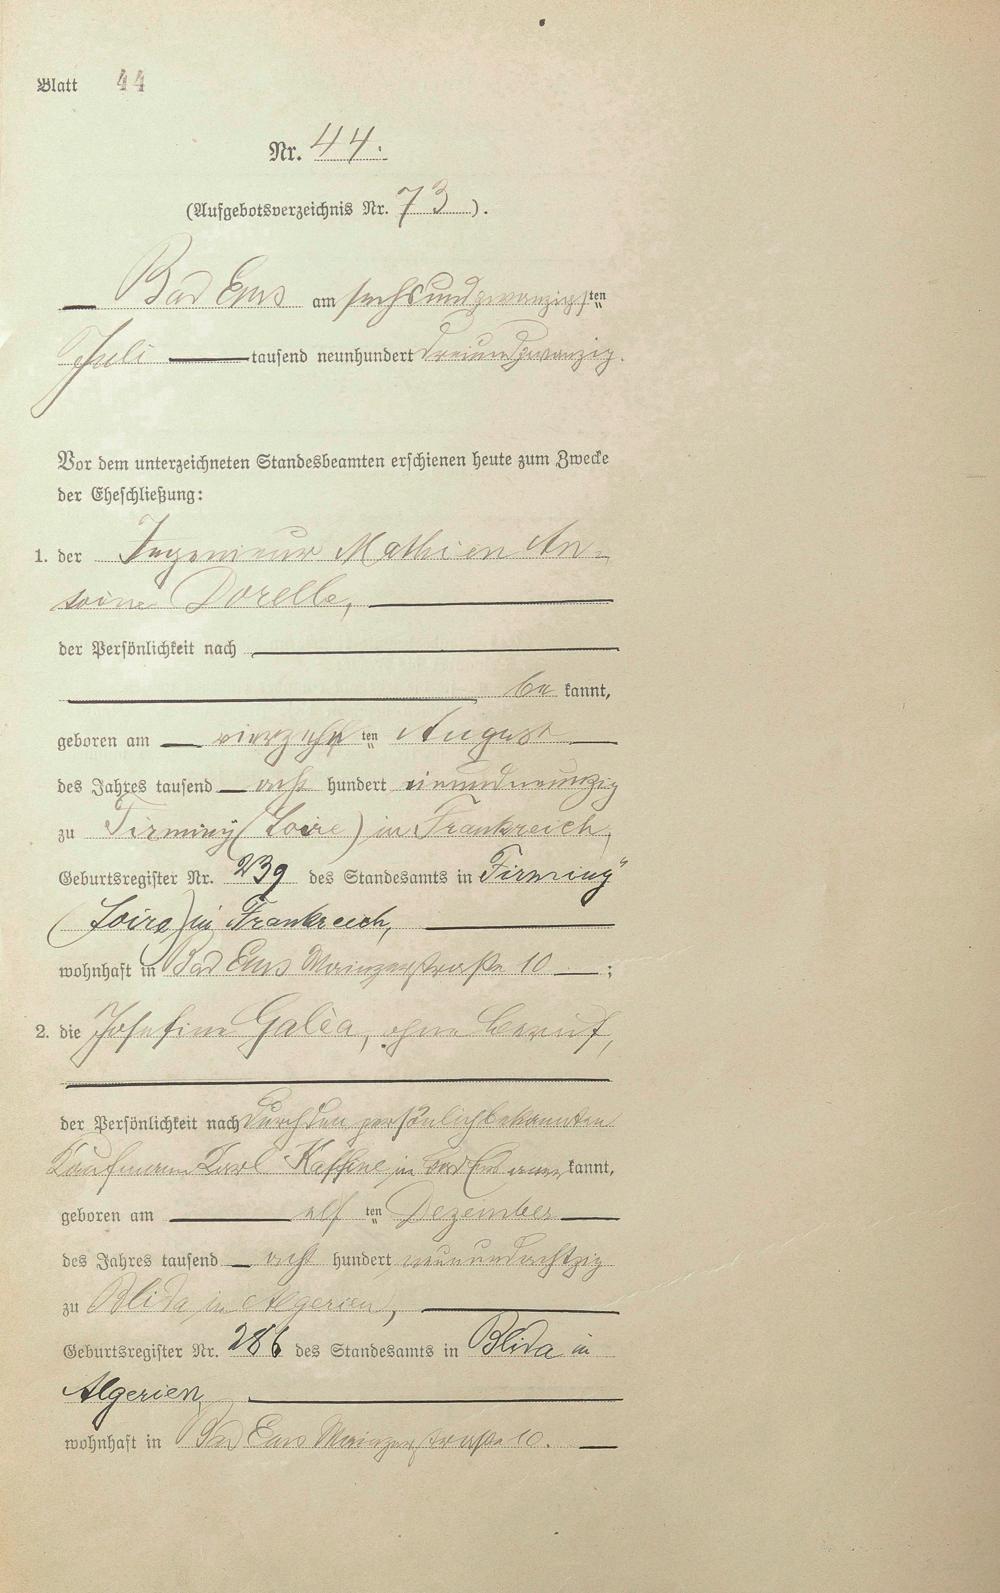 Blatt 44
Nr. 44.
(Aufgebotsverzeichnis Nr. 73).
Bad Ems am sechsundzwanzigsten
Juli tausend neunhundert dreiundzwanzig.
Vor dem unterzeichneten Standesbeamten erschienen heute zum Zwecke
der Eheschließung:
1. der Ingenieur Mathieu An-
toine Dorelle,
der Persönlichkeit nach
be kannt,
geboren am vierzehn ten August
des Jahres tausend acht hundert einundneunzig
zu Firminy (Loire) in Frankreich,
Geburtsregister Nr. 239 des Standesamts in Firminy
(Loire) in Frankreich,
wohnhaft in Bad Ems Mainzerstraße 10 ;
2. die Josefine Galéa, ohne Beruf,
der Persönlichkeit nach durch den persönlich bekannten
Kaufmann Karl in Bad Ems aner kannt,
geboren am elf ten Dezember
des Jahres tausend acht hundert neunundachtzig
zu Blida in Algerien,
Geburtsregister Nr. 286 des Standesamts in Blida in
Algerien,
wohnhaft in Bad Ems Mainzerstraße 10.